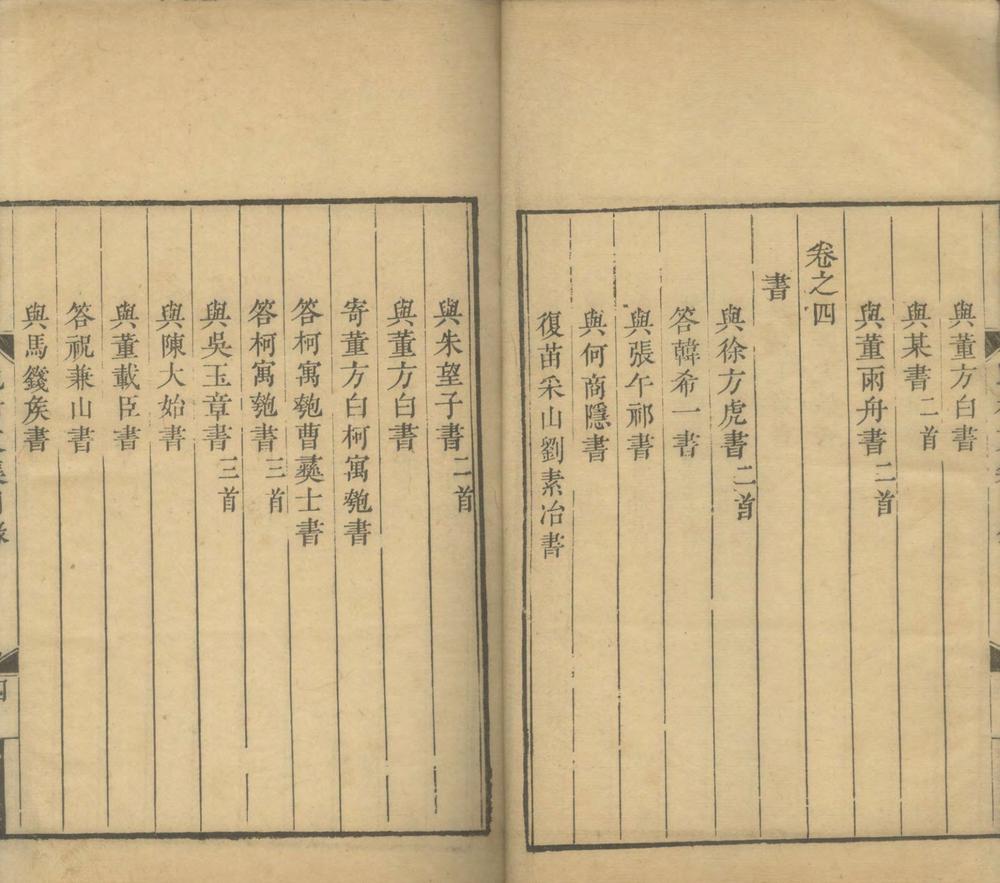 與董方白書
與某書二首
與董雨舟書二首
卷之四
書
與徐方虎書二首
答韓希一書
與張午祁書
與何商隱書
復苗采山劉素冶書
與朱望子書二首
與董方白書
寄董方白柯寓匏書
答柯寓匏曹彞士書
答柯寓匏書三首
與吳玉章書三首
與陳大始書
與董載臣書
答祝兼山書
與馬籛矦書
四